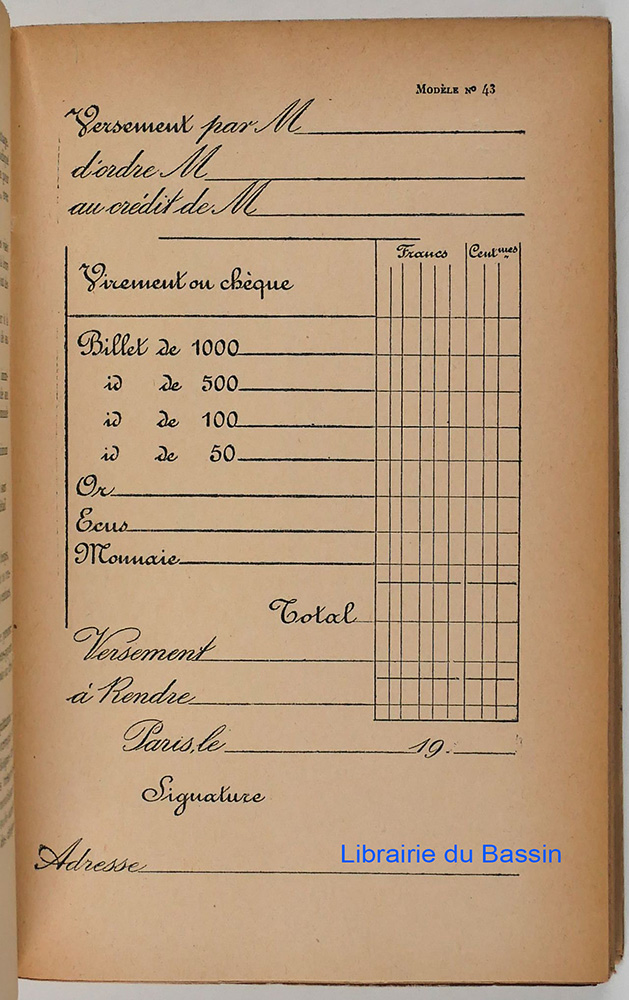 Modèle Nº 43
Versement par M
d'ordre M
au crédit de M
Francs Cent.mes
Virement ou chèque
Billet de 1000
id de 500
id de 100
id de 50
Or
Ecus
Monnaie
Total
Versement
à Rendre
Paris, le 19
Signature
Adresse
Librairie du Bassin